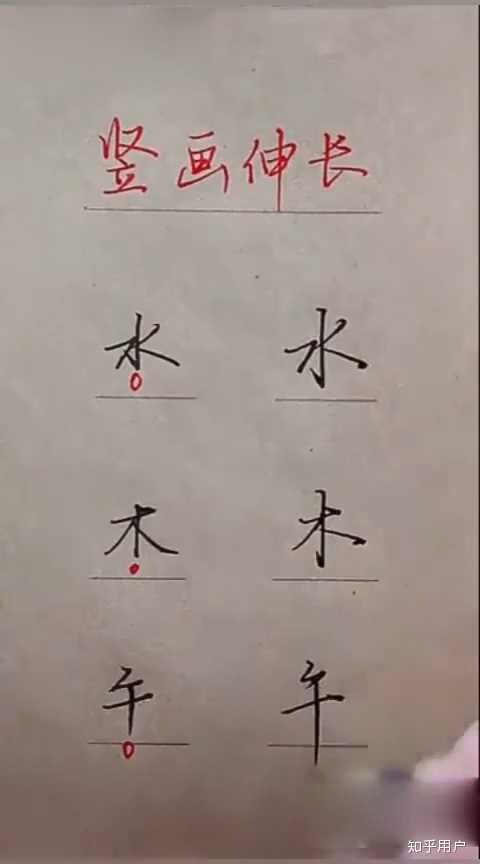 竖画伸长
水 水
木 木
午 午
知乎用户